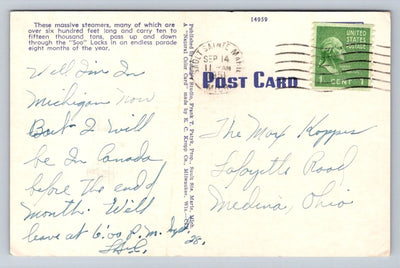 These massive steamers, many of which are
over six hundred feet long and carry ten to
fifteen thousand tons, pass up and down
through the "Soo" Locks in an endless parade
eight months of the year.
14959
SAULT SAINTE MARIE
SEP 14
11 AM
1951
MICH
UNITED
STATES
POSTAGE
1 CENT 1
POST CARD
Well I'm In
Michigan Now
But I will
be In Canada
before the end of
month. Will
leave at 6:00 P.m. Sept.
28.
Published by Young Studio, Frank T. Paiyk, Prop., Sault Ste. Marie, Mich.
A "Natural Color Card" made by E. C. Kropp Co., Milwaukee, Wis.
The Max Koppes
Lafayette Road
Medina, Ohio